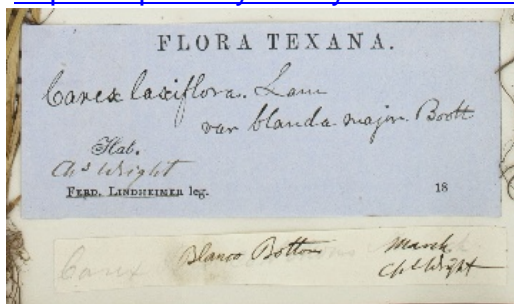 FLORA TEXANA.
Carex laxiflora. Lam
var blanda major. Boott
Hab.
Chs Wright
FERD. LINDHEIMER leg. 18
Blanco Bottom March
Carex Chs Wright